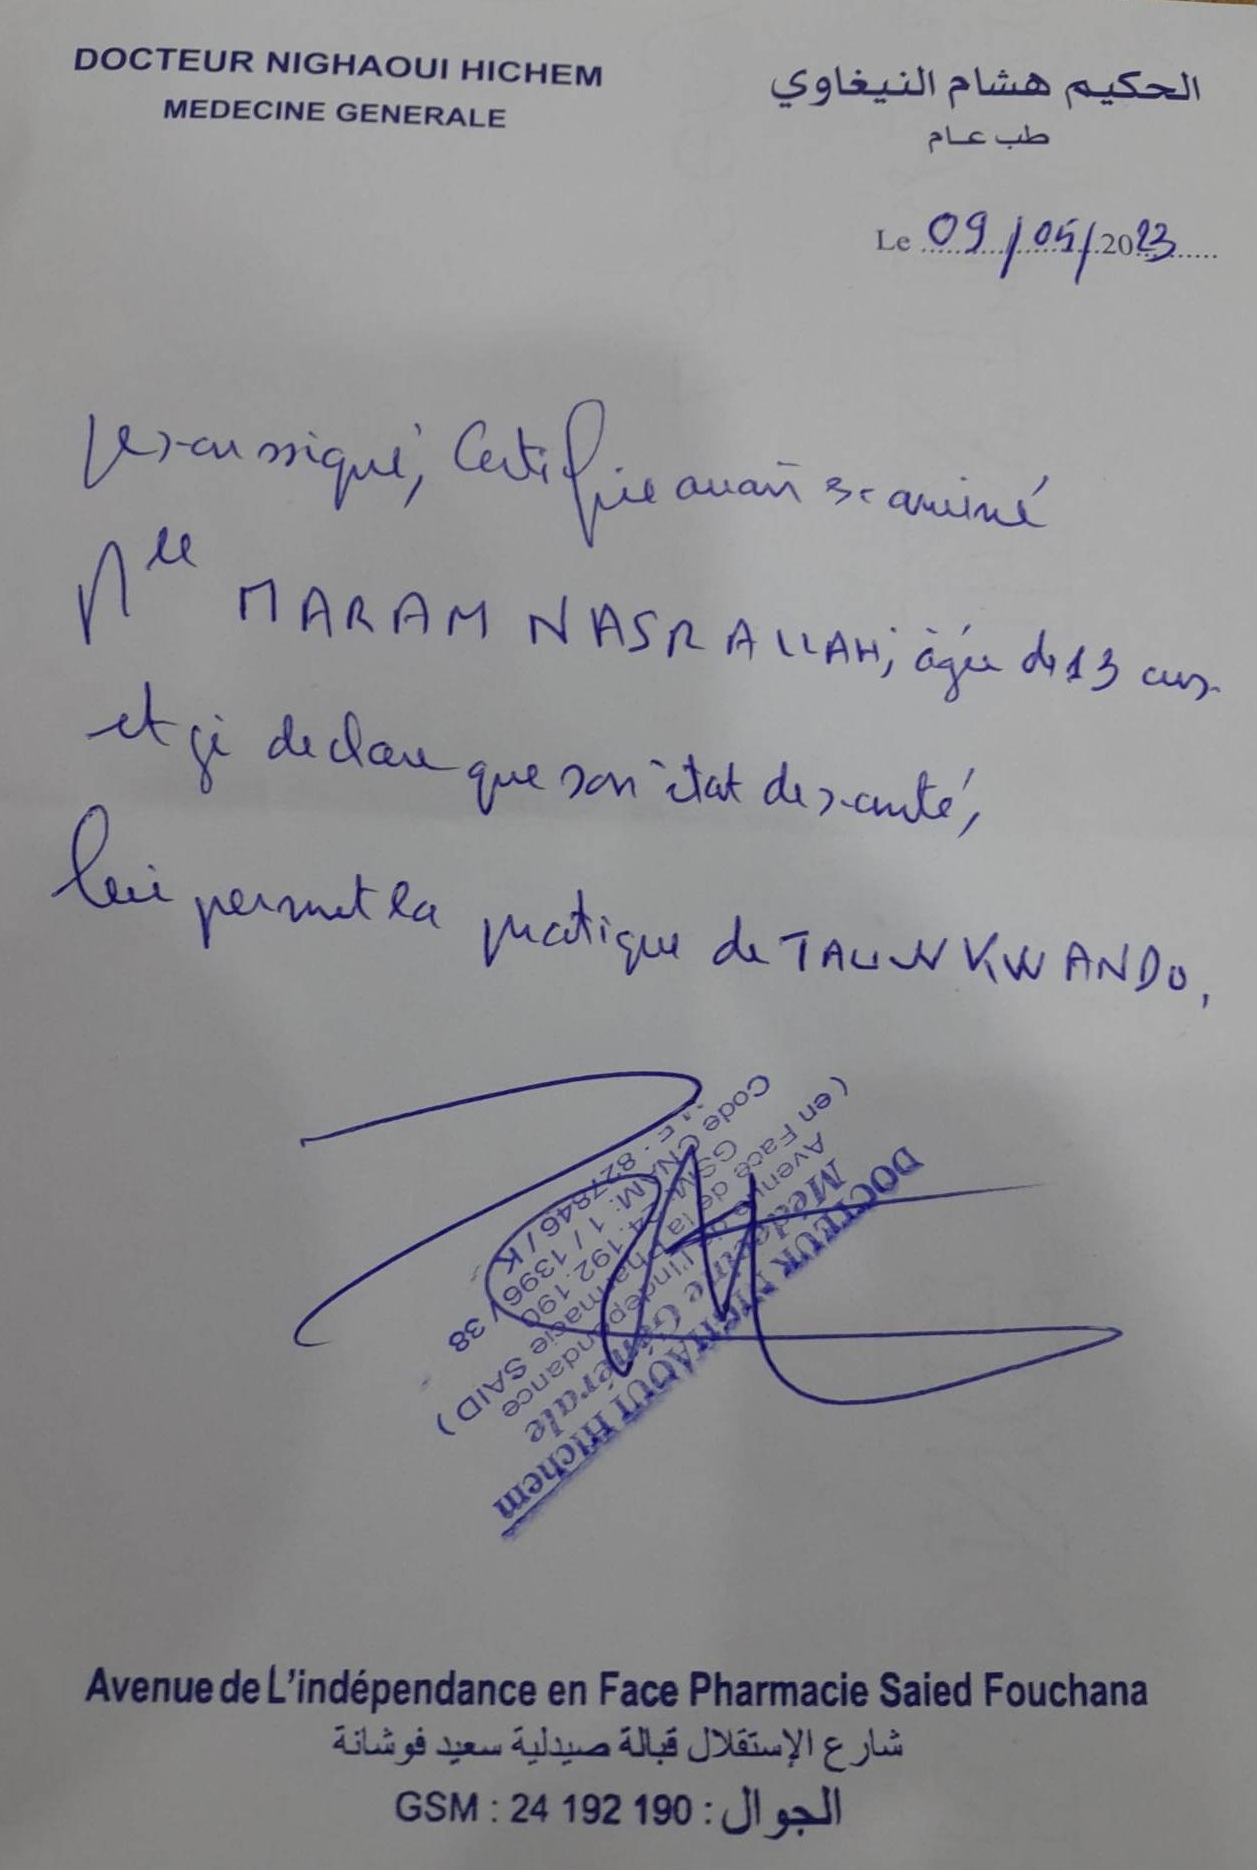 DOCTEUR NIGHAOUI HICHEM
MEDECINE GENERALE
الحكيم هشام النيغاوي
طب عام
Le 09/05/2023
Je soussigné, Certifie avoir examiné
Mlle MARAM NASRALLAH, âgée de 13 ans
et je declare que son état de santé,
lui permet la pratique de TAUNKWANDO,
DOCTEUR NIGHAOUI Hichem
Médecine Générale
Avenue de l'indépendance
(en Face de la Pharmacie SAID)
GSM: 24.192.190
Code CNAM: 1 / 1396 / 38
827846 / K
Avenue de L'indépendance en Face Pharmacie Saied Fouchana
شارع الإستقلال قبالة صيدلية سعيد فوشانة
GSM : 24 192 190 : الجوال